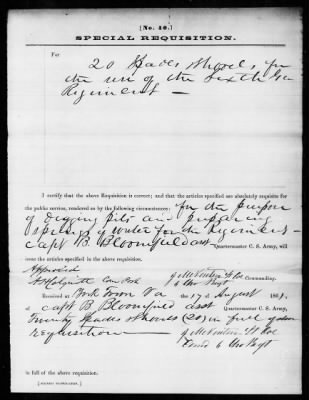 [No. 40.]
SPECIAL REQUISITION.
For
20 Spades & Shovels, for
the use of the Sixth Ga
Regiment —
I certify that the above Requisition is correct; and that the articles specified are absolutely requisite for
the public service, rendered so by the following circumstances: for the purpose
of digging pits and preparing
springs of water for the Regiment—
Capt B. Bloomfield asst Quartermaster C. S. Army, will
issue the articles specified in the above requisition.
Approved
Commanding.
A H Colquitt Com Post 6 Geo Regt
Received at York Town Va the 17 of August 1861,
of Capt B. Bloomfield asst Quartermaster C. S. Army,
Twenty Spades & Shovels (20) in full of above
requisition
6 Geo Regt